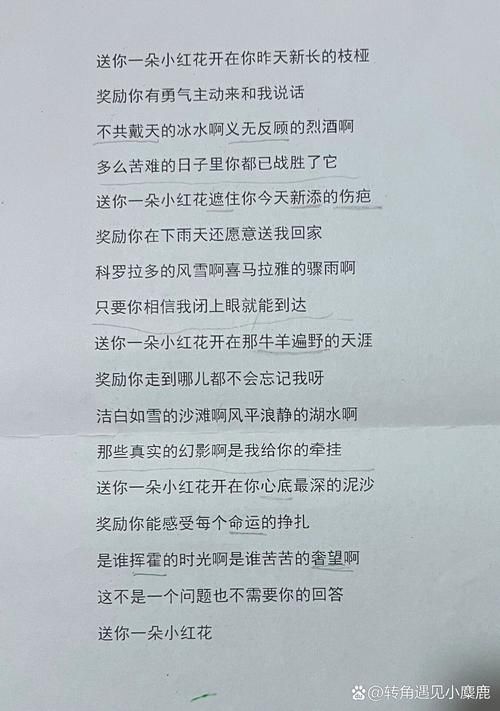 送你一朵小红花开在你昨天新长的枝桠
奖励你有勇气主动来和我说话
不共戴天的冰水啊义无反顾的烈酒啊
多么苦难的日子里你都已战胜了它
送你一朵小红花遮住你今天新添的伤疤
奖励你在下雨天还愿意送我回家
科罗拉多的风雪啊喜马拉雅的骤雨啊
只要你相信我闭上眼就能到达
送你一朵小红花开在那牛羊遍野的天涯
奖励你走到哪儿都不会忘记我呀
洁白如雪的沙滩啊风平浪静的湖水啊
那些真实的幻影啊是我给你的牵挂
送你一朵小红花开在你心底最深的泥沙
奖励你能感受每个命运的挣扎
是谁挥霍的时光啊是谁苦苦的奢望啊
这不是一个问题也不需要你的回答
送你一朵小红花
@转角遇见小麋鹿